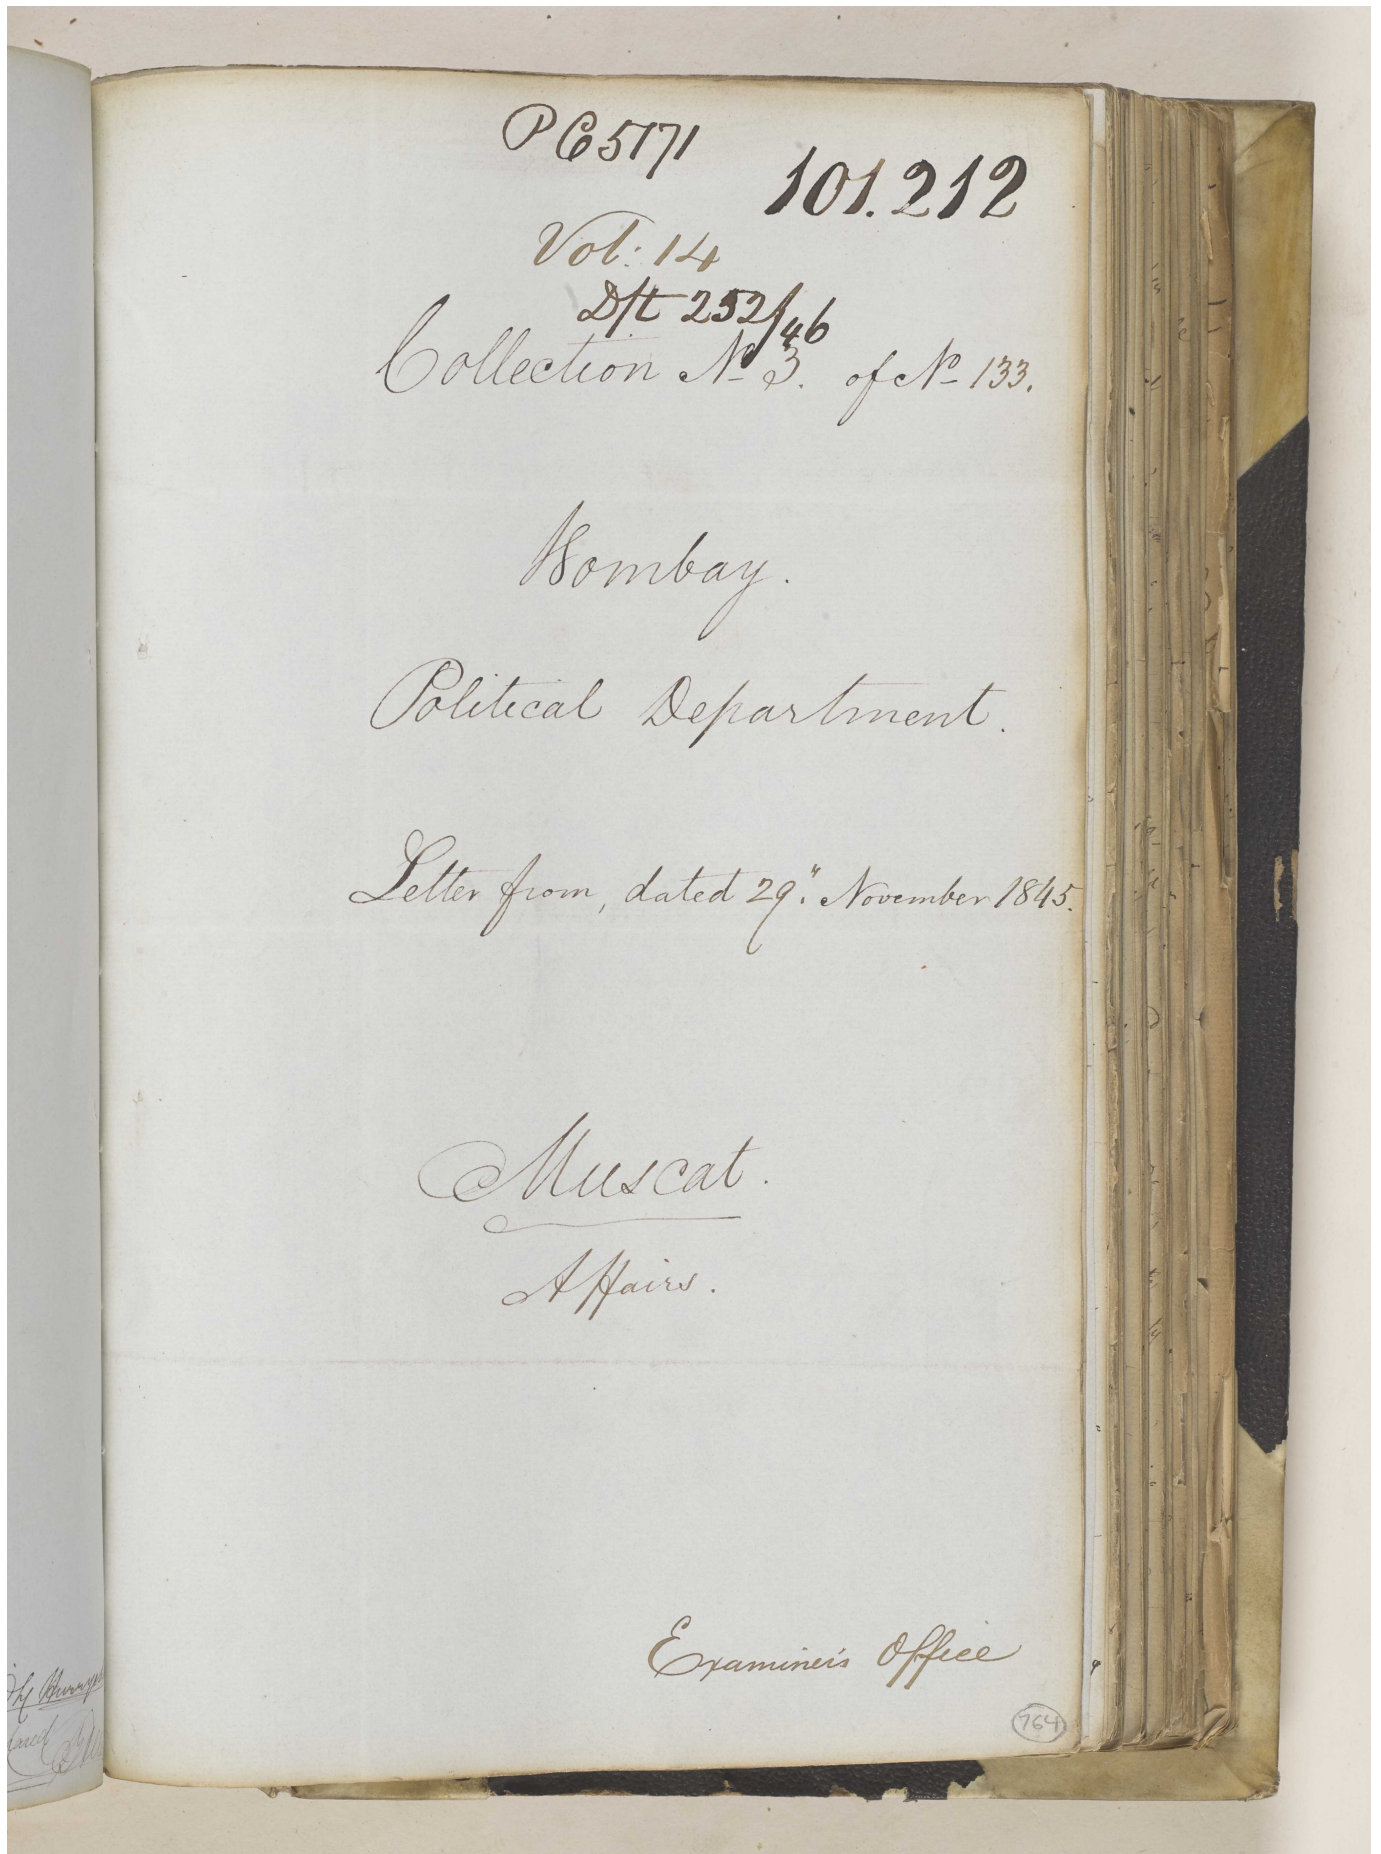 PC 5171
101.212
Vol: 14
Dft 252/46
Collection No 3. of No 133.
Bombay.
Political Department.
Letter from, dated 29" November 1845.
Muscat.
Affairs.
Examiner's Office
764